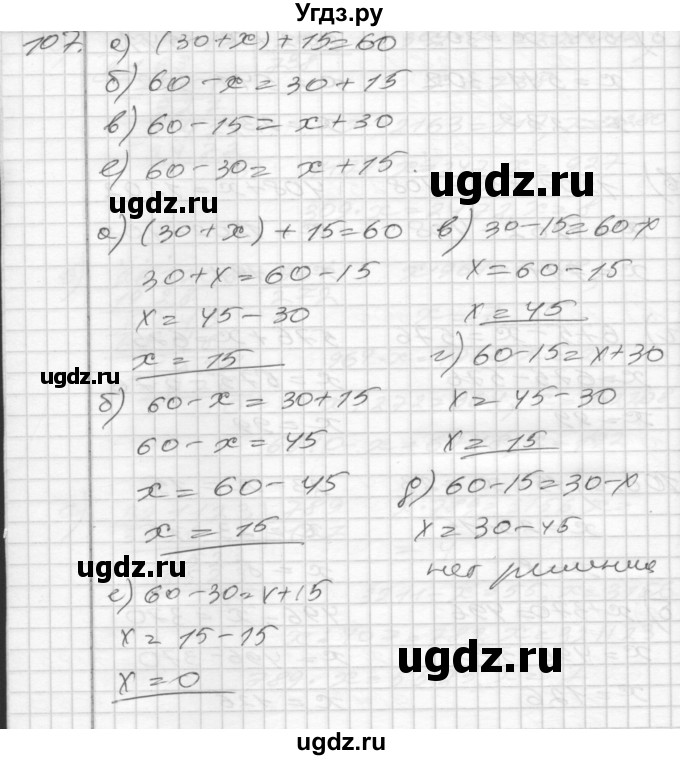 Угдз.ру
107. а) (30+x)+15=60
б) 60-x=30+15
в) 60-15=x+30
е) 60-30= x+15.
ugdz.ru
ugdz.ru
а) (30+x)+15=60
30+x=60-15
x=45-30
x=15
ugdz.ru
б) 60-x=30+15
60-x=45
x=60-45
x=15
ugdz.ru
е) 60-30=x+15
x=15-15
x=0
в) 30-15=60-x
x=60-15
x=45
г) 60-15=x+30
x=45-30
x=15
д) 60-15=30-x
x=30-45
нет решения
ugdz.ru
ugdz.ru